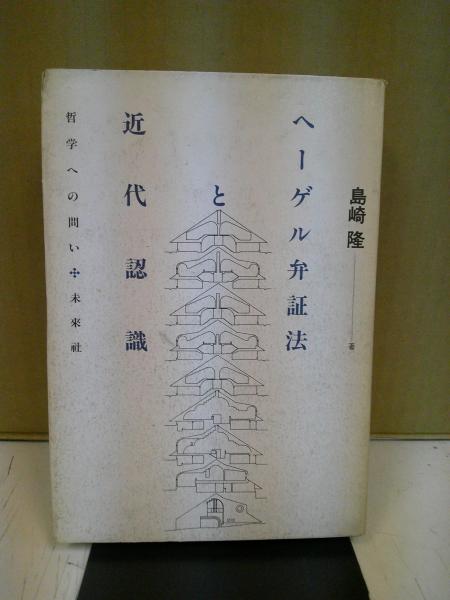 島崎 隆 著
ヘーゲル弁証法
と
近代認識
哲学への問い✣未来社